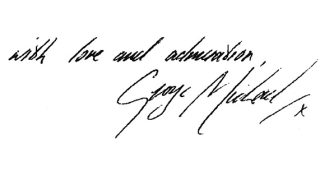 with love and admiration,
George Michael x